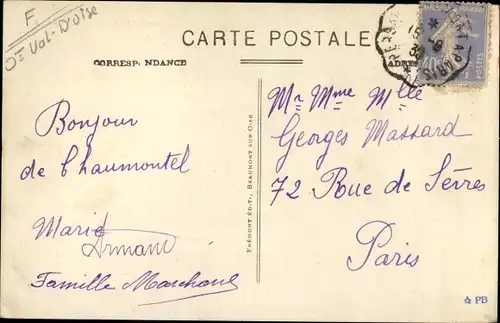 F
Dt Val-D'Oise
CARTE POSTALE
CORRESP. NDANCE
ADRES
Bonjour
de Chaumontel
Marie
Armand
Famille Marchand
FRÉMONT ÉD-T., BEAUMONT-SUR-OISE
Mr Mme Mlle
Georges Massard
72 Rue de Sèvres
Paris
PB